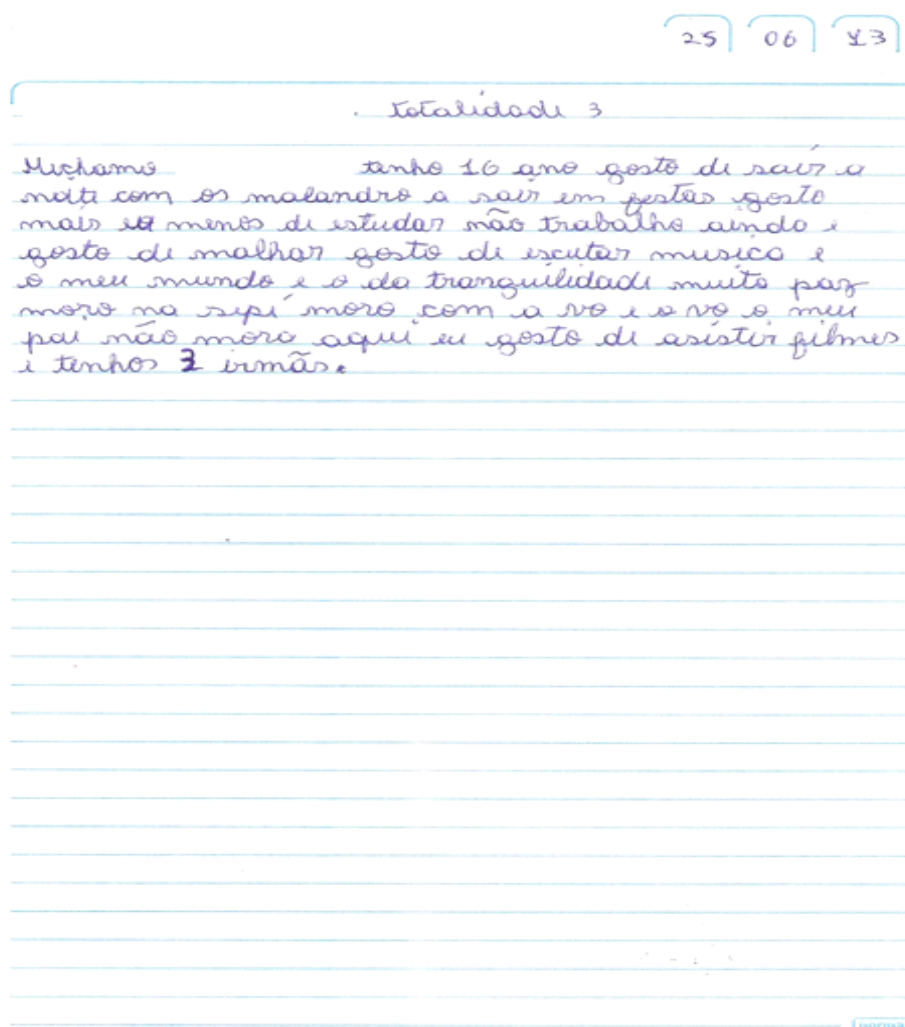 25 06 13
totalidade 3
Muchamo tenho 16 ano gosto de sair a
noite com os malandro a sair em festas gosto
mais ou menos de estudar não trabalho aindo e
gosto de malhar gosto de escutar musica e
o meu mundo e o da tranquilidade muito paz
moro na sepí moro com a vo e o vo o meu
pai não mora aqui eu gosto de asistir filmes
e tenhos 3 irmãs.